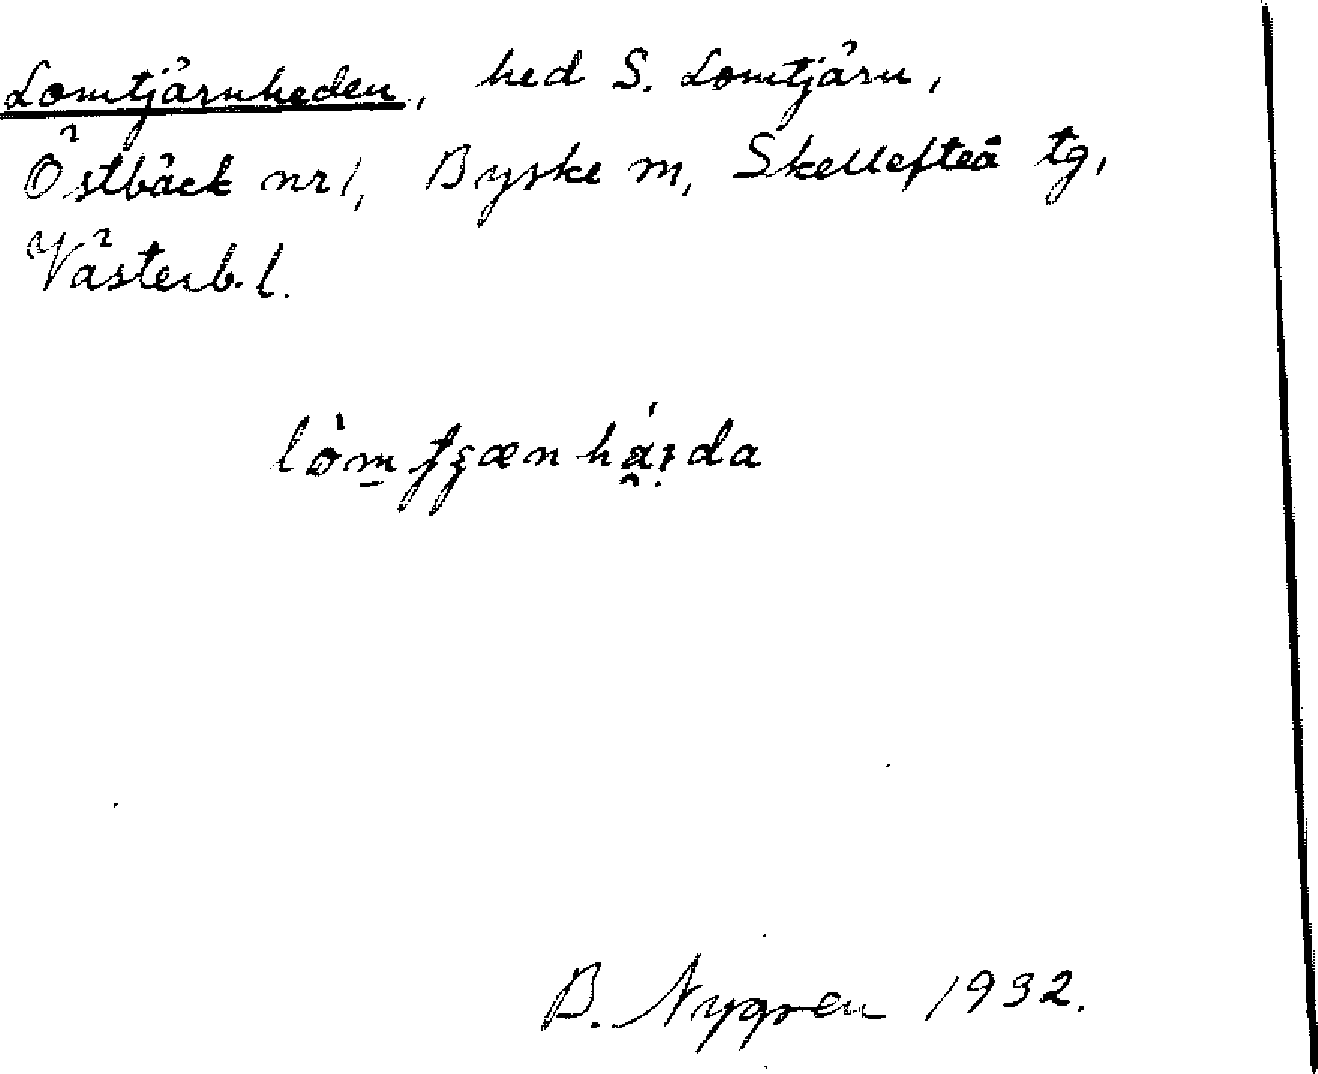 Lomtjärnheden, hed S. Lomtjärn,
Östbäck nr 1, Byske m, Skellefteå tg,
Västerb. l.
B. Nygren 1932.